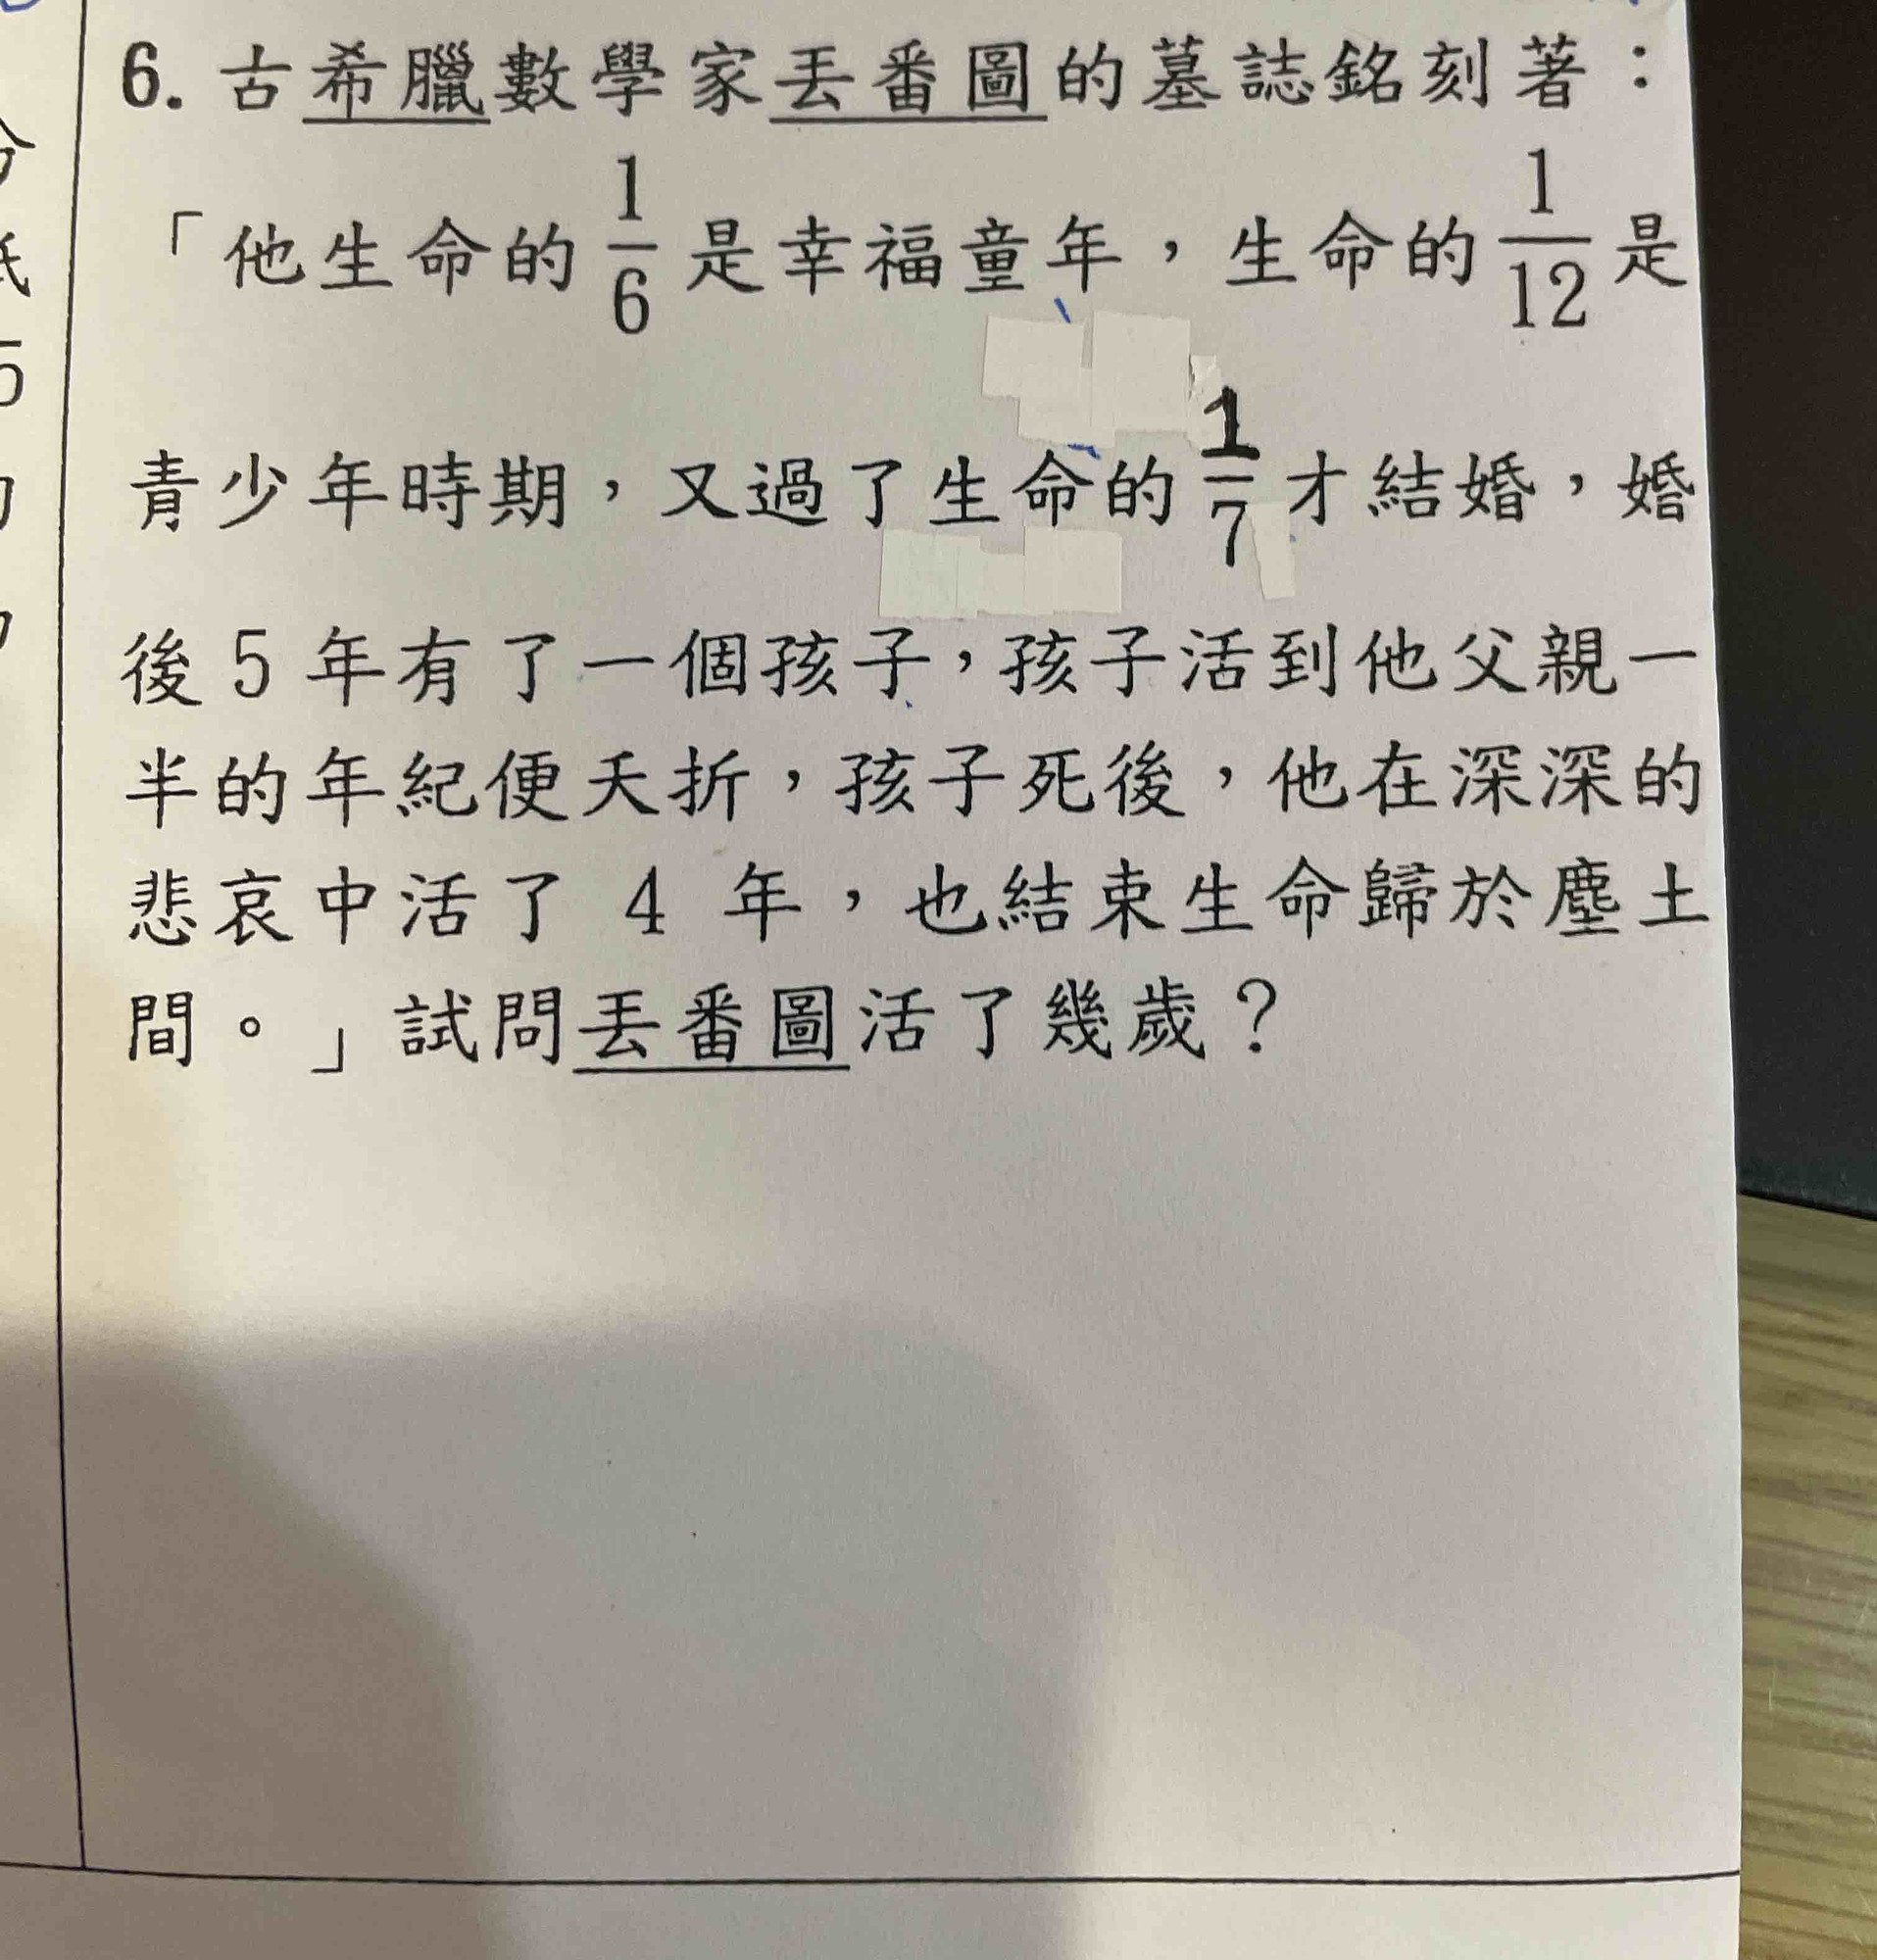 6. 古希臘數學家丟番圖的墓誌銘刻著：
「他生命的1/6是幸福童年，生命的1/12是
青少年時期，又過了生命的1/7才結婚，婚
後5年有了一個孩子，孩子活到他父親一
半的年紀便夭折，孩子死後，他在深深的
悲哀中活了 4 年，也結束生命歸於塵土
間。」試問丟番圖活了幾歲？